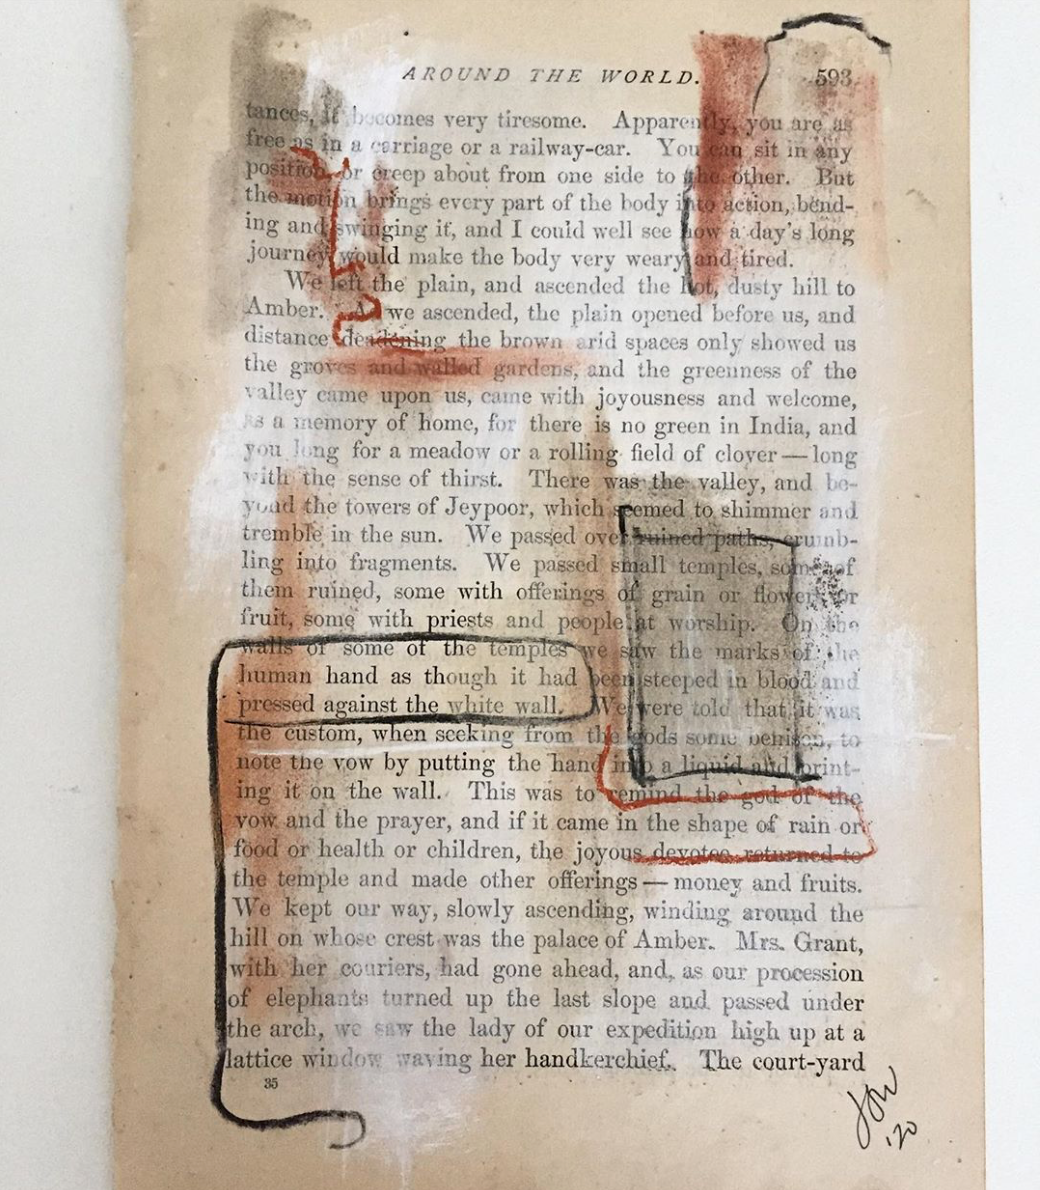 AROUND THE WORLD. 593
tances, it becomes very tiresome. Apparently, you are as
free as in a carriage or a railway-car. You can sit in any
position, or creep about from one side to the other. But
the motion brings every part of the body into action, bend-
ing and swinging it, and I could well see how a day's long
journey would make the body very weary and tired.
We left the plain, and ascended the hot, dusty hill to
Amber. As we ascended, the plain opened before us, and
distance deadening the brown arid spaces only showed us
the groves and walled gardens, and the greenness of the
valley came upon us, came with joyousness and welcome,
as a memory of home, for there is no green in India, and
you long for a meadow or a rolling field of clover — long
with the sense of thirst. There was the valley, and be-
yond the towers of Jeypoor, which seemed to shimmer and
tremble in the sun. We passed over ruined paths, crumb-
ling into fragments. We passed small temples, some of
them ruined, some with offerings of grain or flowers or
fruit, some with priests and people at worship. On the
walls of some of the temples we saw the marks of the
human hand as though it had been steeped in blood and
pressed against the white wall. We were told that it was
the custom, when seeking from the gods some benison, to
note the vow by putting the hand into a liquid and print-
ing it on the wall. This was to remind the god of the
vow and the prayer, and if it came in the shape of rain or
food or health or children, the joyous devotee returned to
the temple and made other offerings — money and fruits.
We kept our way, slowly ascending, winding around the
hill on whose crest was the palace of Amber. Mrs. Grant,
with her couriers, had gone ahead, and, as our procession
of elephants turned up the last slope and passed under
the arch, we saw the lady of our expedition high up at a
lattice window waving her handkerchief. The court-yard
35
'20